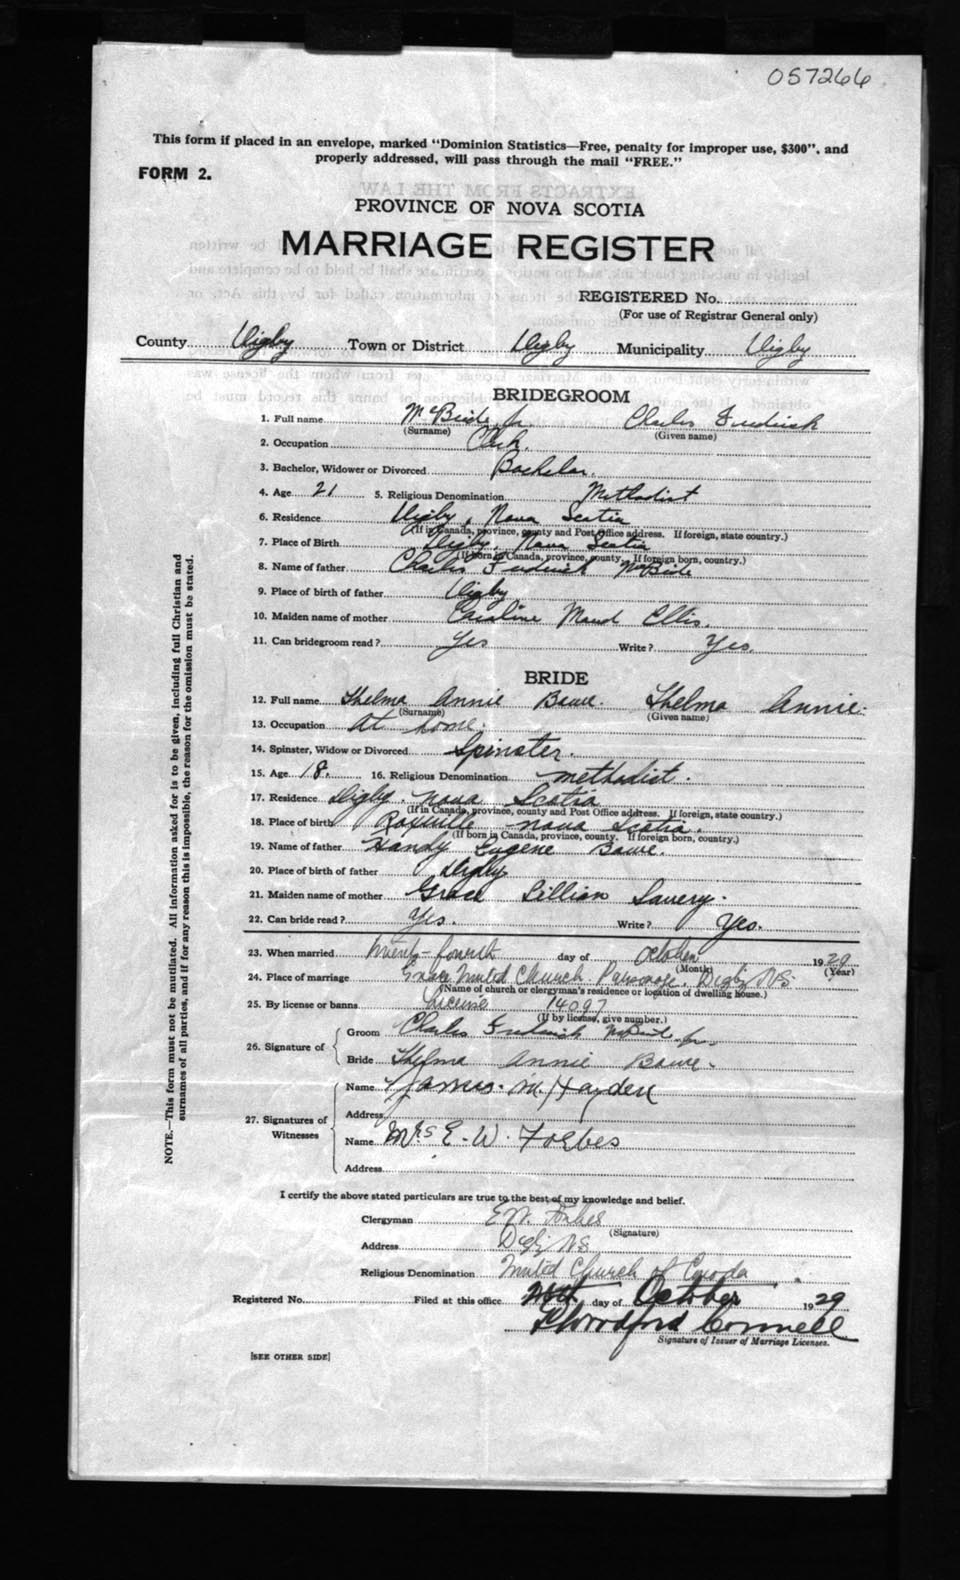 057266
This form if placed in an envelope, marked "Dominion Statistics—Free, penalty for improper use, $300", and
properly addressed, will pass through the mail "FREE."
FORM 2.
PROVINCE OF NOVA SCOTIA
MARRIAGE REGISTER
REGISTERED No.
(For use of Registrar General only)
County Digby Town or District Digby Municipality Digby
BRIDEGROOM
1. Full name McBride, Jr. Charles Fredrick
(Surname) (Given name)
2. Occupation Clerk.
3. Bachelor, Widower or Divorced Bachelor.
4. Age 21 5. Religious Denomination Methodist
6. Residence Digby, Nova Scotia
(If in Canada, province, county and Post Office address. If foreign, state country.)
7. Place of Birth Digby, Nova Scotia
(If born in Canada, province, county. If foreign born, country.)
8. Name of father Charles Fredrick McBride
9. Place of birth of father Digby
10. Maiden name of mother Caroline Maud Ellis.
11. Can bridegroom read? Yes Write? Yes.
BRIDE
12. Full name Thelma Annie Thelma Annie.
(Surname) (Given name)
13. Occupation At home.
14. Spinster, Widow or Divorced Spinster.
15. Age 18. 16. Religious Denomination methodist.
17. Residence Digby. Nova Scotia
(If in Canada, province, county and Post Office address. If foreign, state country.)
18. Place of birth Roxville Nova Scotia.
(If born in Canada, province, county. If foreign born, country.)
19. Name of father Handy Eugene
20. Place of birth of father Digby
21. Maiden name of mother Grace Lillian
22. Can bride read? Yes. Write? Yes.
23. When married Twenty-fourth day of October 1929
(Month) (Year)
24. Place of marriage Grace United Church Parsonage. Digby N.S.
(Name of church or clergyman's residence or location of dwelling house.)
25. By license or banns License 14097
(If by license, give number.)
26. Signature of Groom Charles Fredrick McBride Jr.
Bride Thelma Annie
27. Signatures of Witnesses
Name James M. Hayden
Address
Name Mrs E. W. Forbes
Address
I certify the above stated particulars are true to the best of my knowledge and belief.
Clergyman E.W. Forbes
(Signature)
Address Digby N.S.
Religious Denomination United Church of Canada
Registered No. Filed at this office day of October 1929
Connell
Signature of Issuer of Marriage Licenses.
[SEE OTHER SIDE]
NOTE.—This form must not be mutilated. All information asked for is to be given, including full Christian and
surnames of all parties, and if for any reason this is impossible, the reason for the omission must be stated.